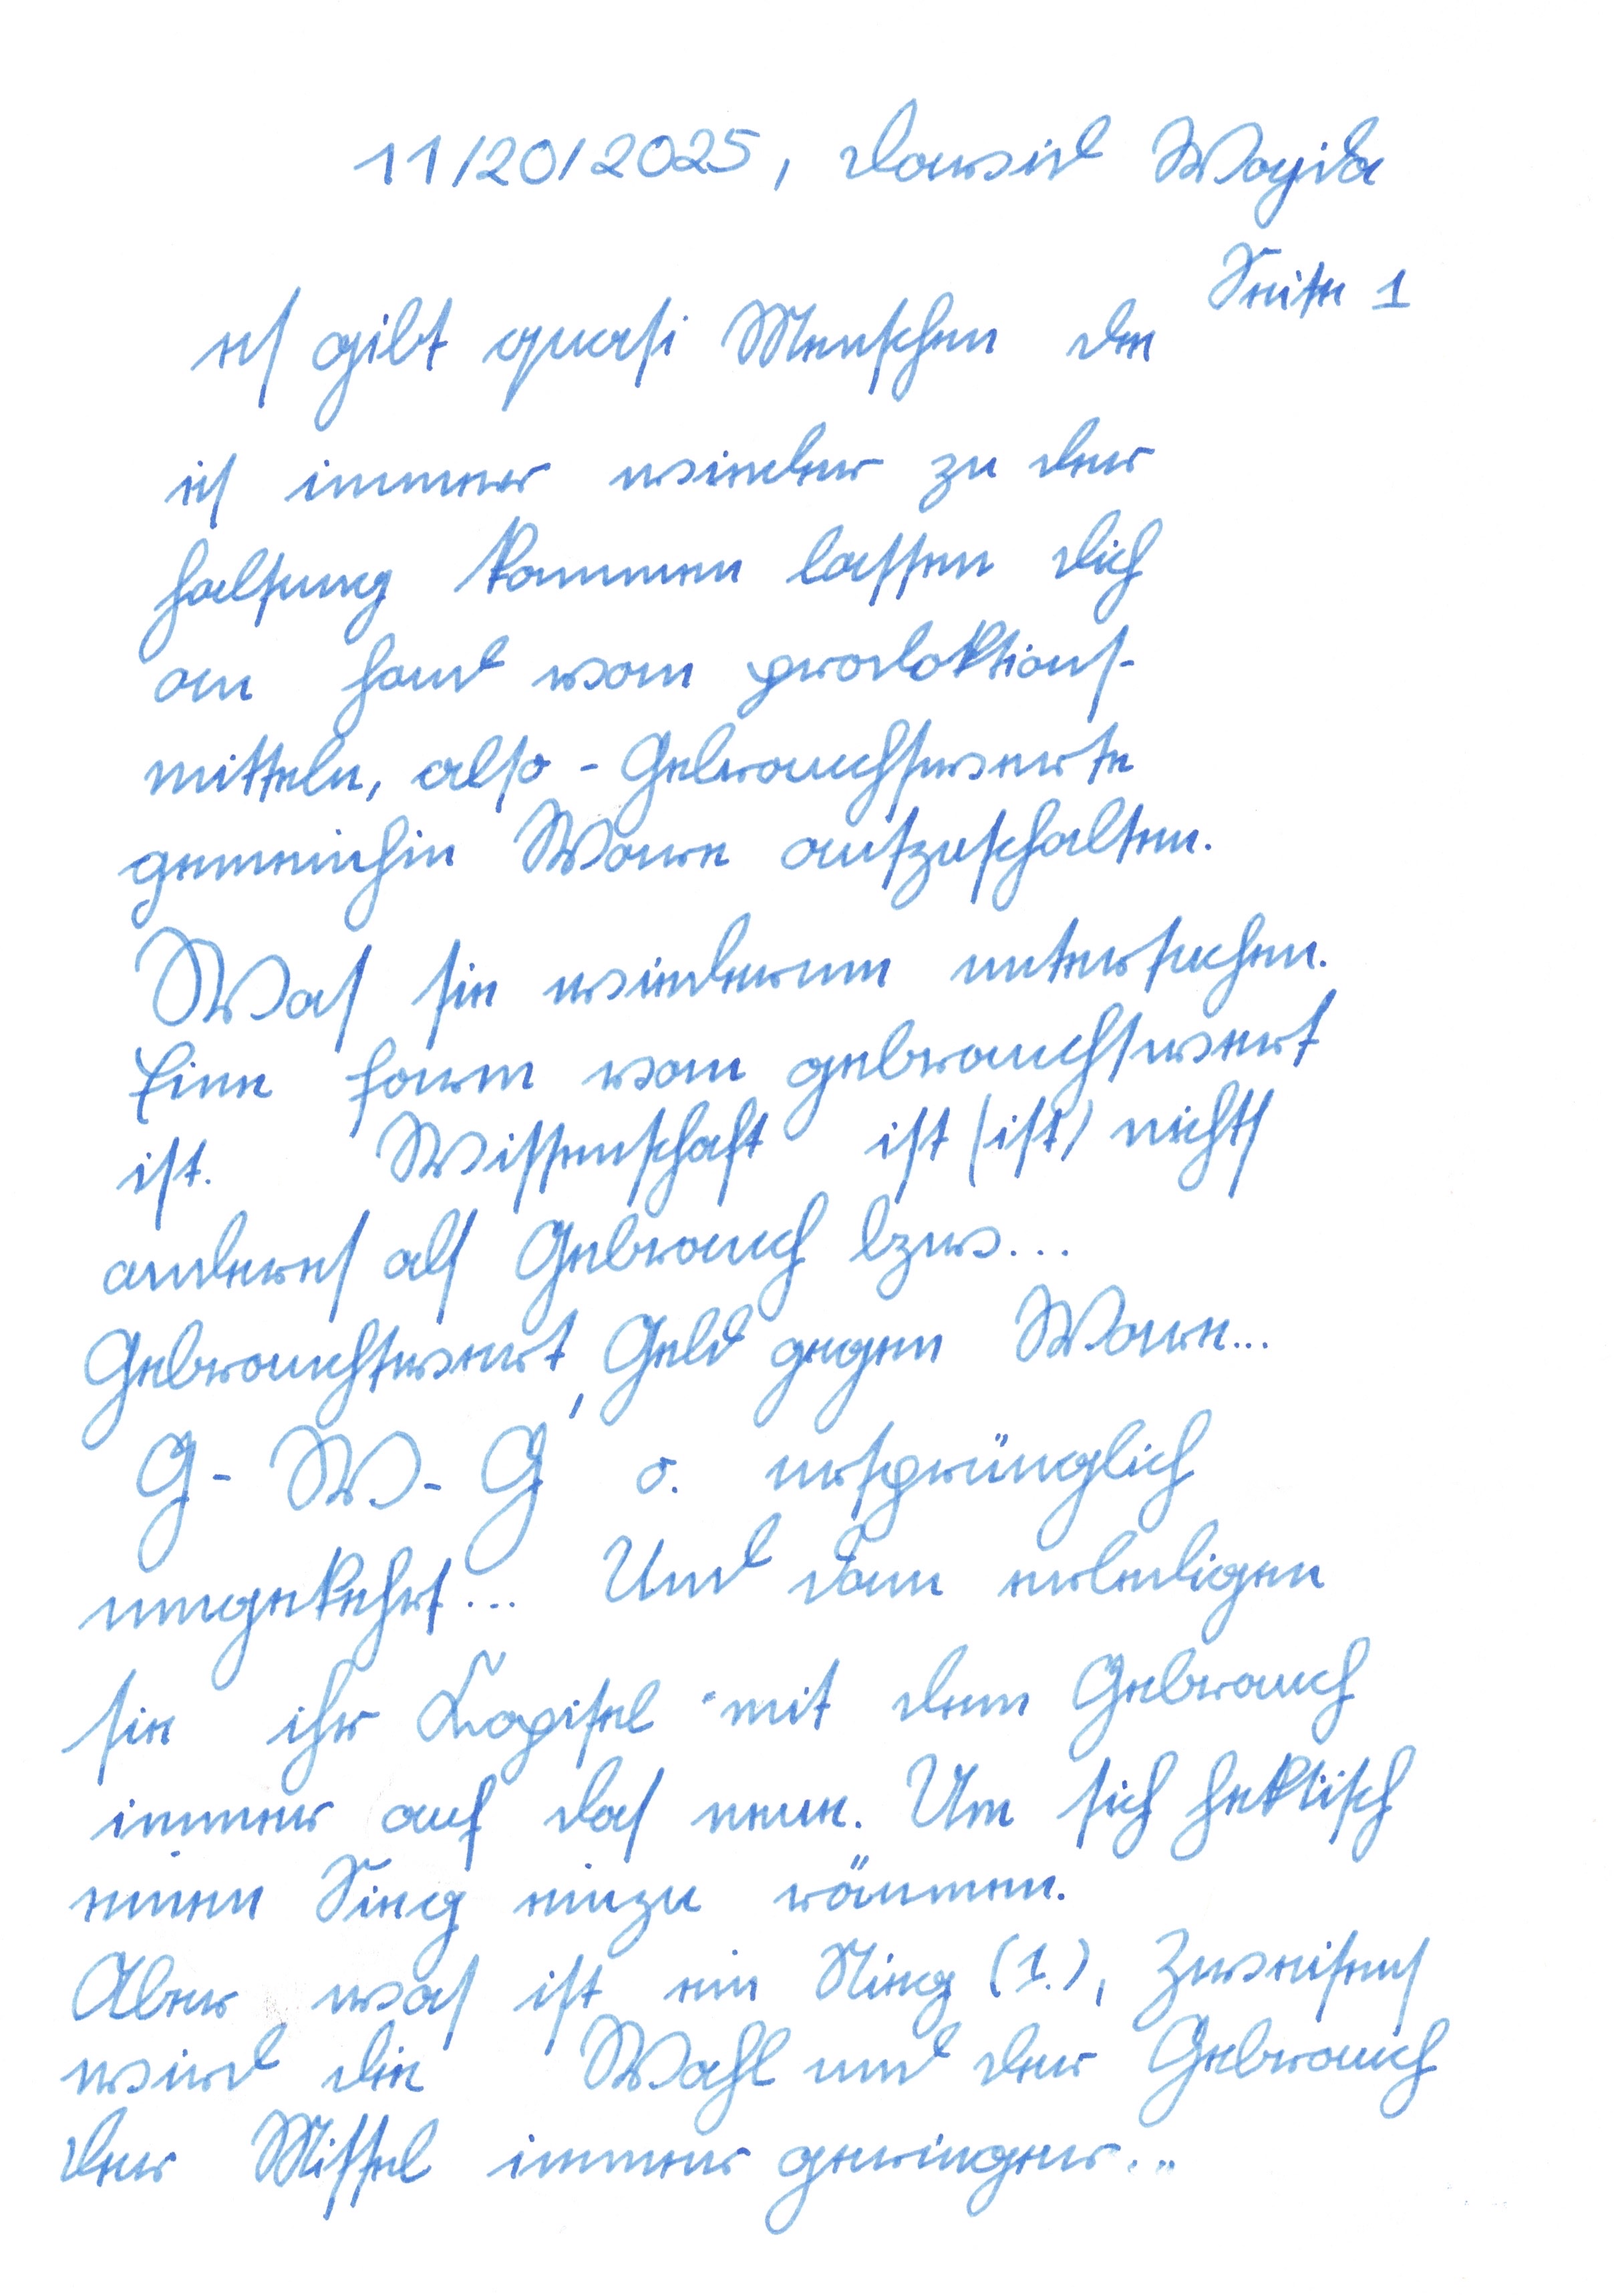 11/20/2025, David Wayida
Seite 1
es gibt quasi Menschen die
ich immer wieder zu der
haltung kommen lassen dich
an hand von prodoktions-
mitteln, also - Gebrauchswerte
gemeinhin Ware aufzuschalten.
Was sie wiederum untersuchen.
Eine form von gebrauchswert
ist. Wissenschaft ist (ist) nichts
anderes als Gebrauch bzw...
Gebrauchswert, Geld gegen Ware...
G - W - G o. ursprünglich
umgekehrt... Und dann erledigen
sie ihr Kapitel mit dem Gebrauch
immer auf das neue. Um sich hektisch
einen Sieg einzu räumen.
Aber was ist ein Sieg (1.), Zweitens
wird die Wahl und der Gebrauch
der Mittel immer geringer...